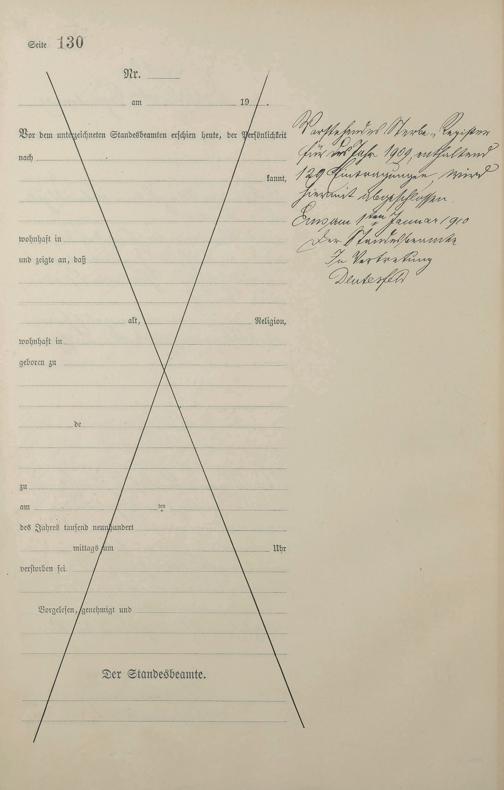 Seite 130
Nr.
am 19
Vor dem unterzeichneten Standesbeamten erschien heute, der Persönlichkeit
nach
kannt,
wohnhaft in
und zeigte an, daß
alt, Religion,
wohnhaft in
geboren zu
de
zu
am ten
des Jahres tausend neunhundert
mittags um Uhr
verstorben sei.
Vorgelesen, genehmigt und
Der Standesbeamte.
Vorstehendes Sterbe-Register
für das Jahr 1909, enthaltend
129 Eintragungen, wird
hiermit abgeschlossen.
Ems am 1ten Januar 1910
Der Standesbeamte
In Vertretung